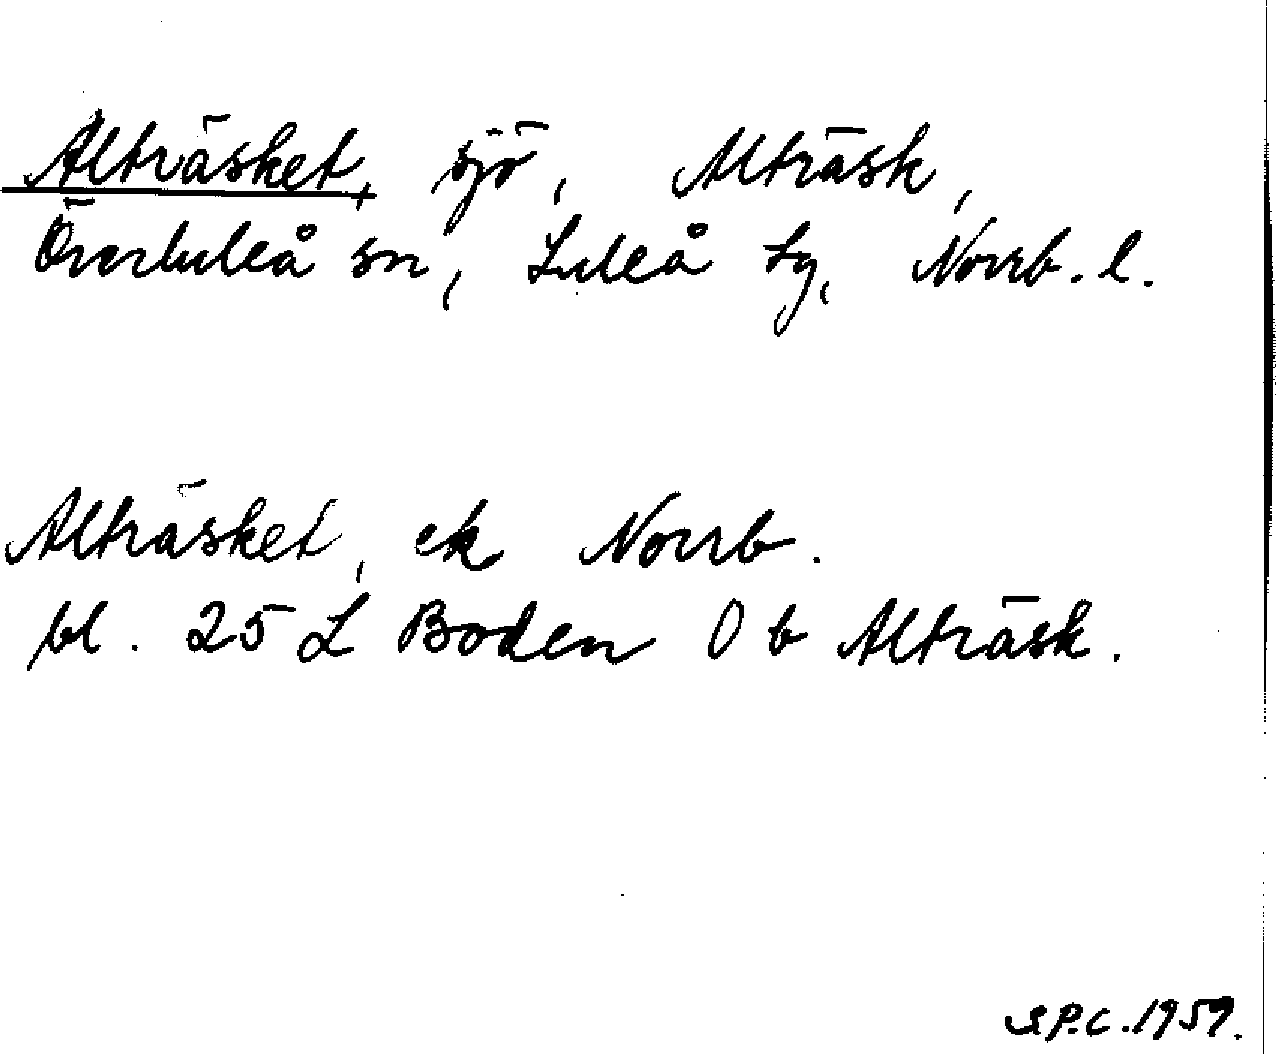 Alträsket, sjö, Alträsk,
Överluleå sn, Luleå tg, Norrb. l.
Alträsket, ek Norrb.
bl. 25 L Boden O b Alträsk.
S.P.C. 1959.